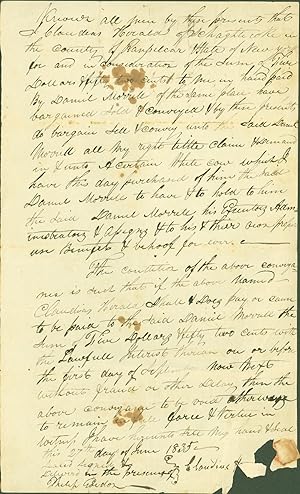 Know all men by these presents that
I Claudius Harala of Schaghticoke in
the County of Rensselaer State of New york
for and in Consideration of the Sum of Five
Dollars & fifty two cents to me in hand paid
By Daniel Morrell of the same place have
bargained Sold & conveyed & by these presents
do bargain Sell & Convey unto the Said Daniel
Morrell all my right title Claim & demand
in & unto A certain White cow which I
have this day purchased of him the said
Daniel Morrell to have & to hold to him
the Said Daniel Morrell his Executors Adm
inistrators & Assigns & to his & their own proper
use Benefit & behoof for ever
The condition of the above conveya
nce is such that if the above Named
Claudius Harala Shall & Does pay or cause
to be paid to the Said Daniel Morrell the
Sum of Five Dollars & fifty two cents with
the Lawfull Interest thereon on or before
the first day of Now Next
without fraud or other Delay then the
above conveyance to be void otherways
to remain in full force & Virtue in
Witness I have hereunto Set my hand & Seal
this 27th day of June 183
Seald Signed &
Delivered in the presence of Claudius
Philip